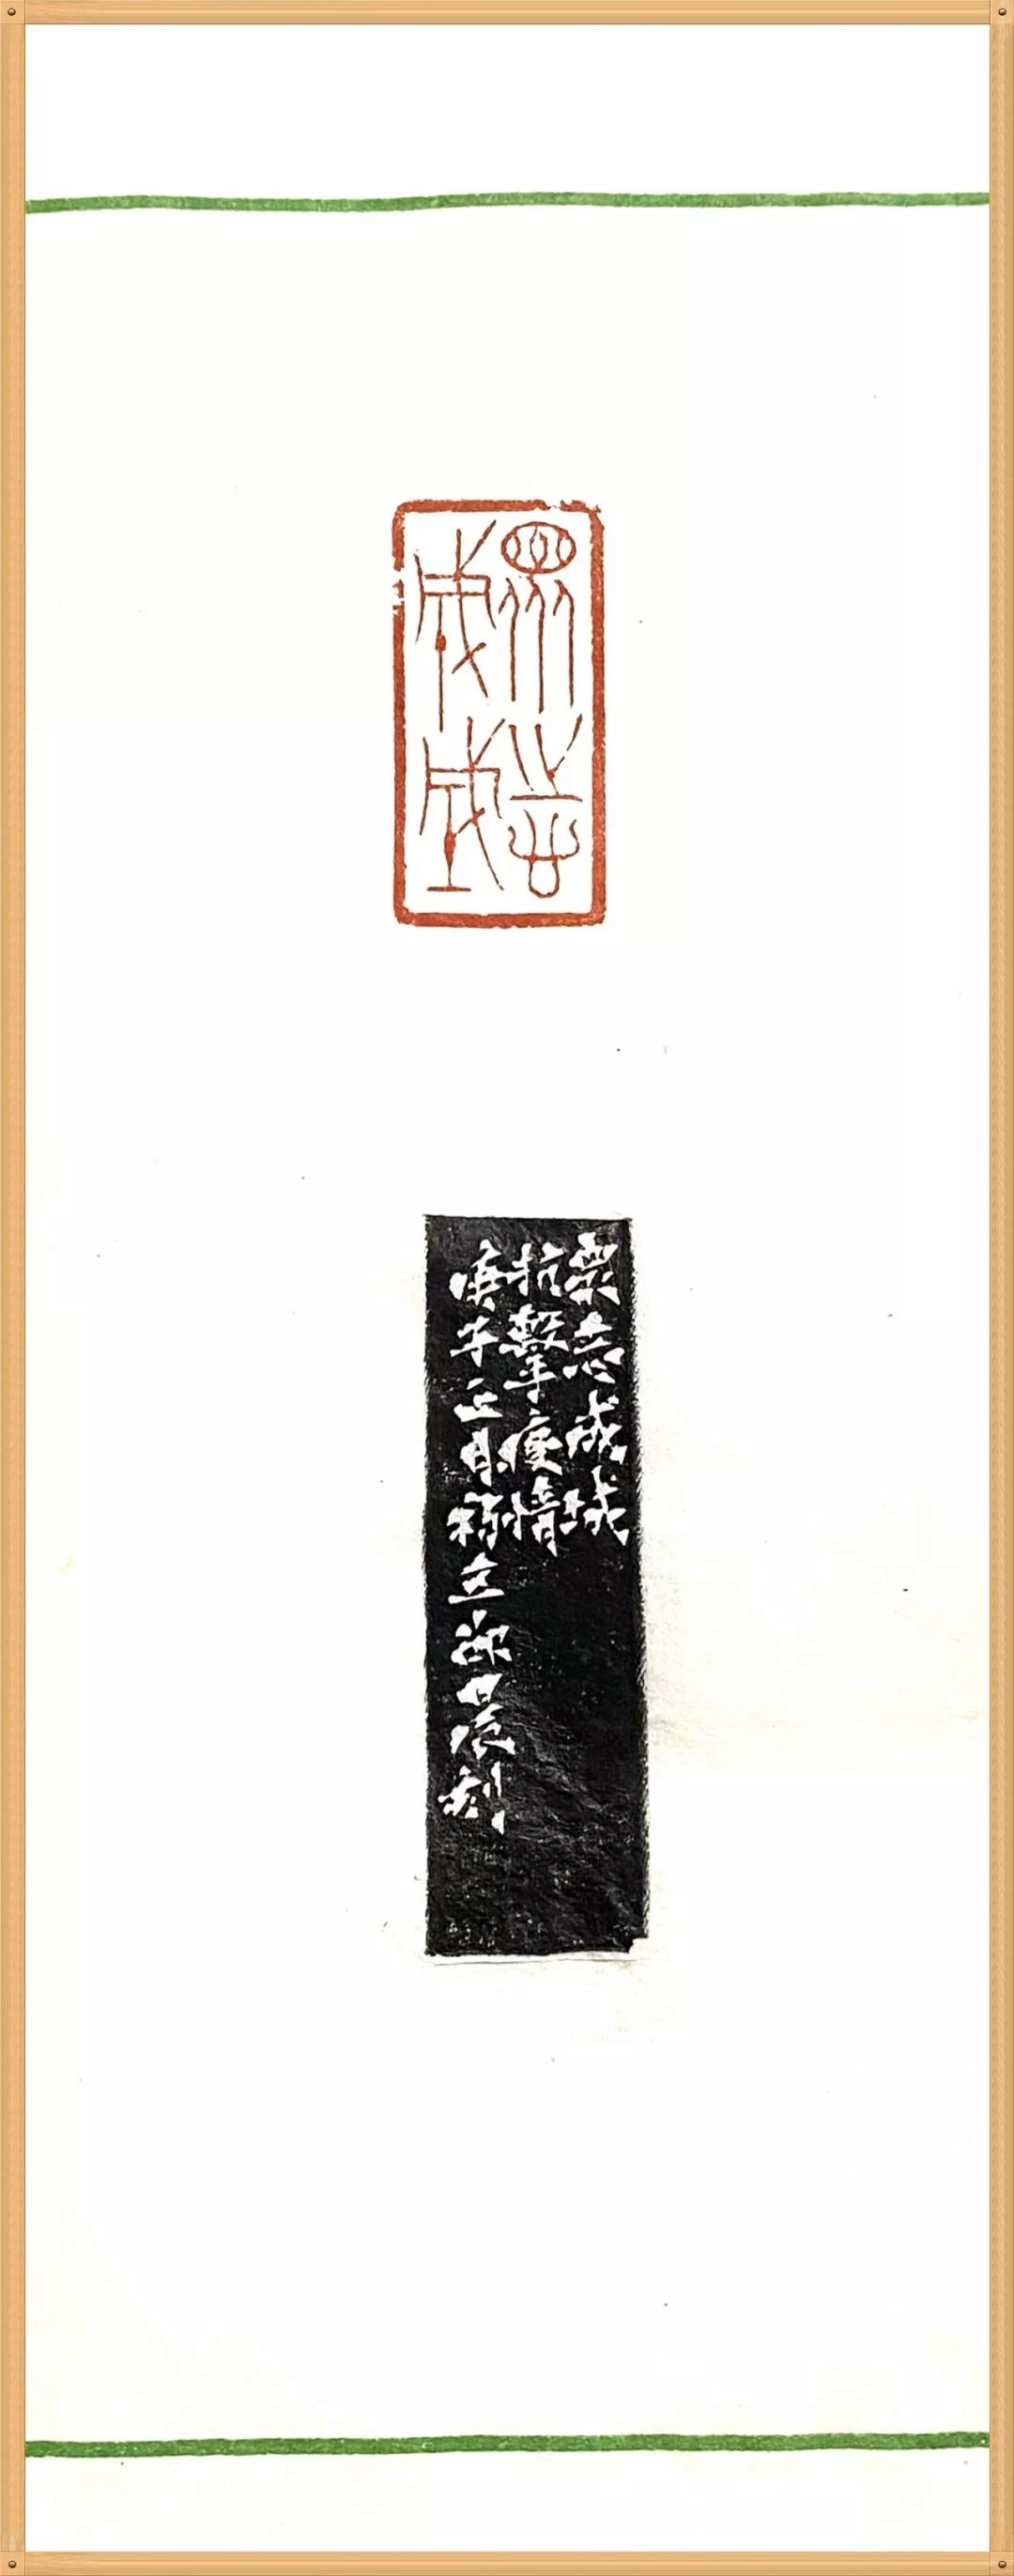 眾志
成城
眾志成城
抗擊疫情
庚子正月立刻